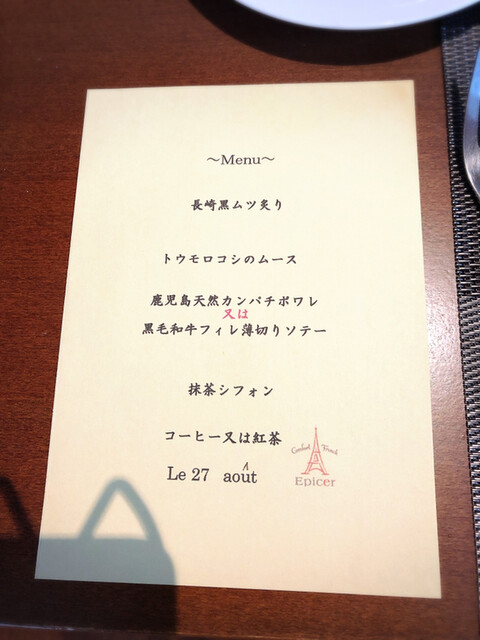 ～Menu～
長崎黒ムツ炙り
トウモロコシのムース
鹿児島天然カンパチポワレ
又は
黒毛和牛フィレ薄切りソテー
抹茶シフォン
コーヒー又は紅茶
Le 27 août
Epicer